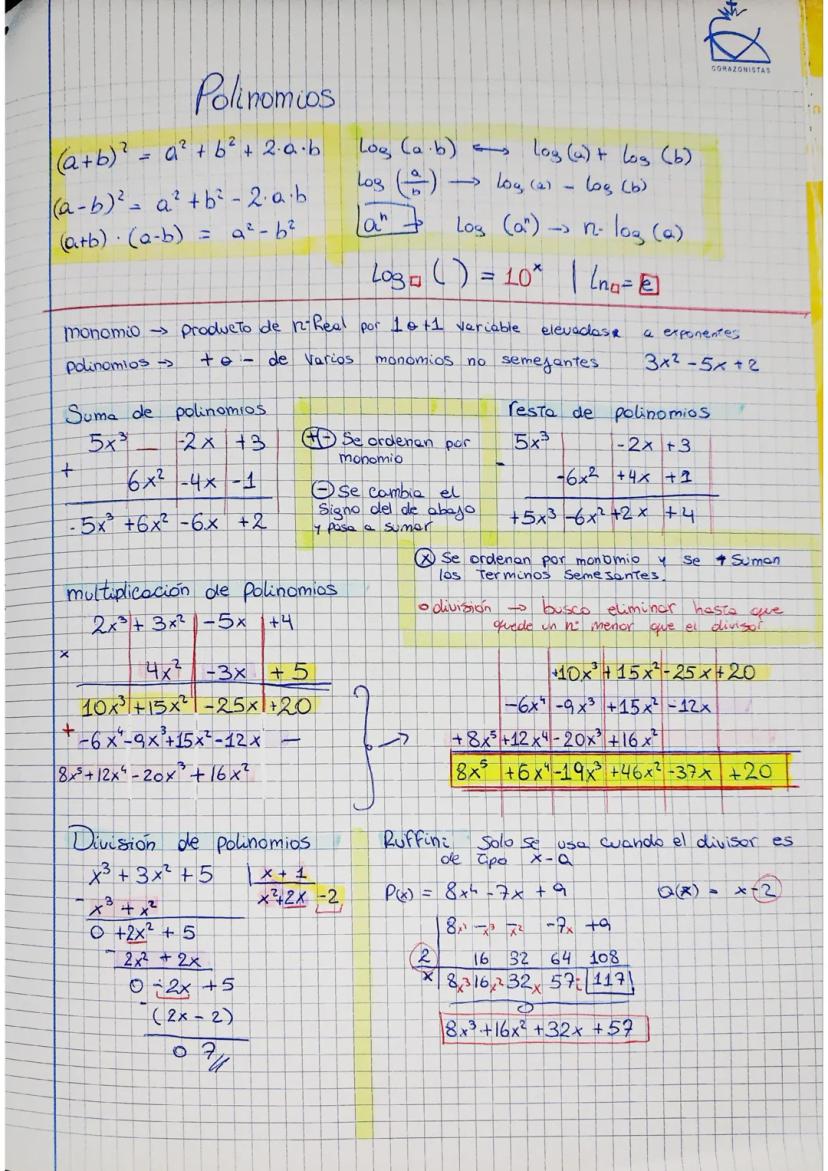 CORAZONISTAS
Polinomios
(a+b)² = a² + b² + 2·a·b
(a-b)² = a² + b² - 2·a·b
(a+b) · (a-b) = a² - b²
Log (a·b) ⟷ log (a) + log (b)
Log (a/b) → log (a) - log (b)
aⁿ → Log (aⁿ) → n· log (a)
Log□ ( ) = 10ˣ | Ln□ = e
monomio → producto de nº Real por 1 o +1 variable elevadas a exponentes
polinomios → + o - de varios monomios no semejantes 3x² - 5x + 2
Suma de polinomios
5x³ -2x +3
+ 6x² -4x -1
5x³ +6x² -6x +2
+ - Se ordenan por
monomio
- Se cambia el
signo del de abajo
y pasa a sumar
resta de polinomios
5x³ -2x +3
- -6x² +4x +1
+5x³ -6x² +2x +4
x Se ordenan por monomio y se + suman
los terminos semesantes.
división → busco eliminar hasta que
quede un nº menor que el divisor
multiplicación de polinomios
2x³ + 3x² -5x +4
x 4x² -3x +5
10x³ +15x² -25x +20
+ -6x⁴ -9x³ +15x² -12x —
8x⁵ +12x⁴ -20x³ +16x²
→
+10x³ +15x² -25x +20
-6x⁴ -9x³ +15x² -12x
+8x⁵ +12x⁴ -20x³ +16x²
8x⁵ +6x⁴ -19x³ +46x² -37x +20
División de polinomios
x³ + 3x² + 5 | x + 1
- x³ + x² x²+2x -2
0 +2x² + 5
- 2x² + 2x
0 -2x +5
- (2x - 2)
0 7
Ruffini: Solo se usa cuando el divisor es
de tipo x-a
P(x) = 8x⁴ - 7x + 9 Q(x) = x-2
8x⁴ -x³ -x² -7x +9
2 16 32 64 108
x 8x³ 16x² 32x 57 117
0
8x³ + 16x² + 32x + 57